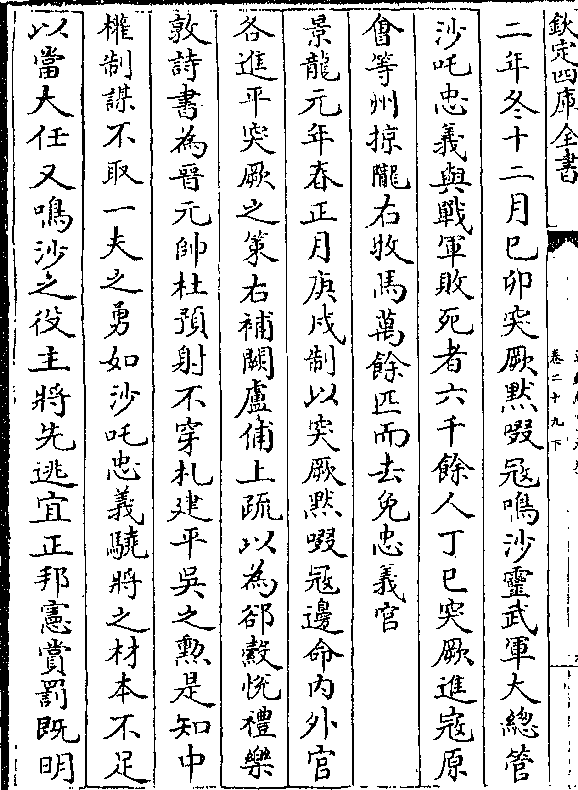 欽定四庫全書
卷二十九下
二年冬十二月己卯突厥默啜冦鳴沙靈武軍大總管
沙吒忠義與戰軍敗死者六千餘人丁巳突厥進冦原
㑹等州掠隴右牧馬萬餘匹而去免忠義官
景龍元年春正月庚戌制以突厥默啜冦邊命内外官
各進平突厥之策右補闕盧俌上疏以為郤縠悦禮樂
敦詩書為晉元帥杜預射不穿札建平吳之勲是知中
權制謀不取一夫之勇如沙吒忠義驍將之材本不足
以當大任又鳴沙之役主將先逃宜正邦憲賞罰既明